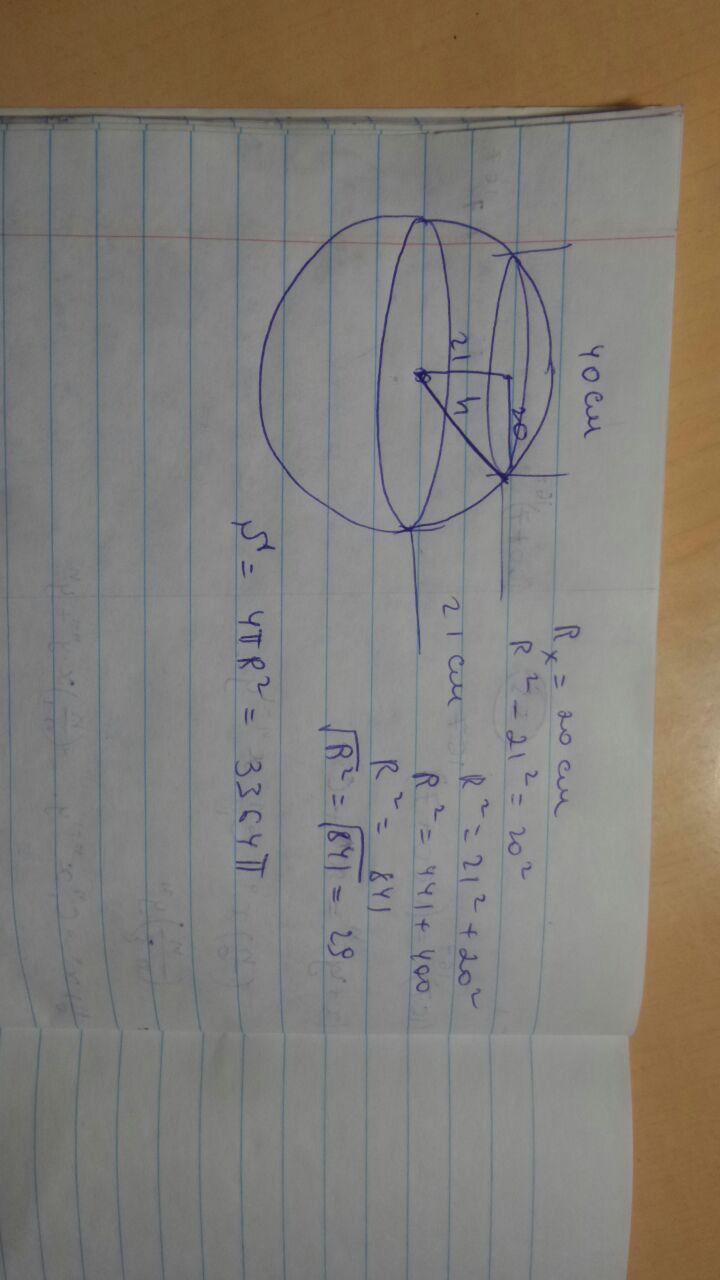 40см
21
h
20
21 см
Rₓ = 20 см
R² - 21² = 20²
R² = 21² + 20²
R² = 441 + 400
R² = 841
√R² = √841 = 29
S = 4πR² = 3364π